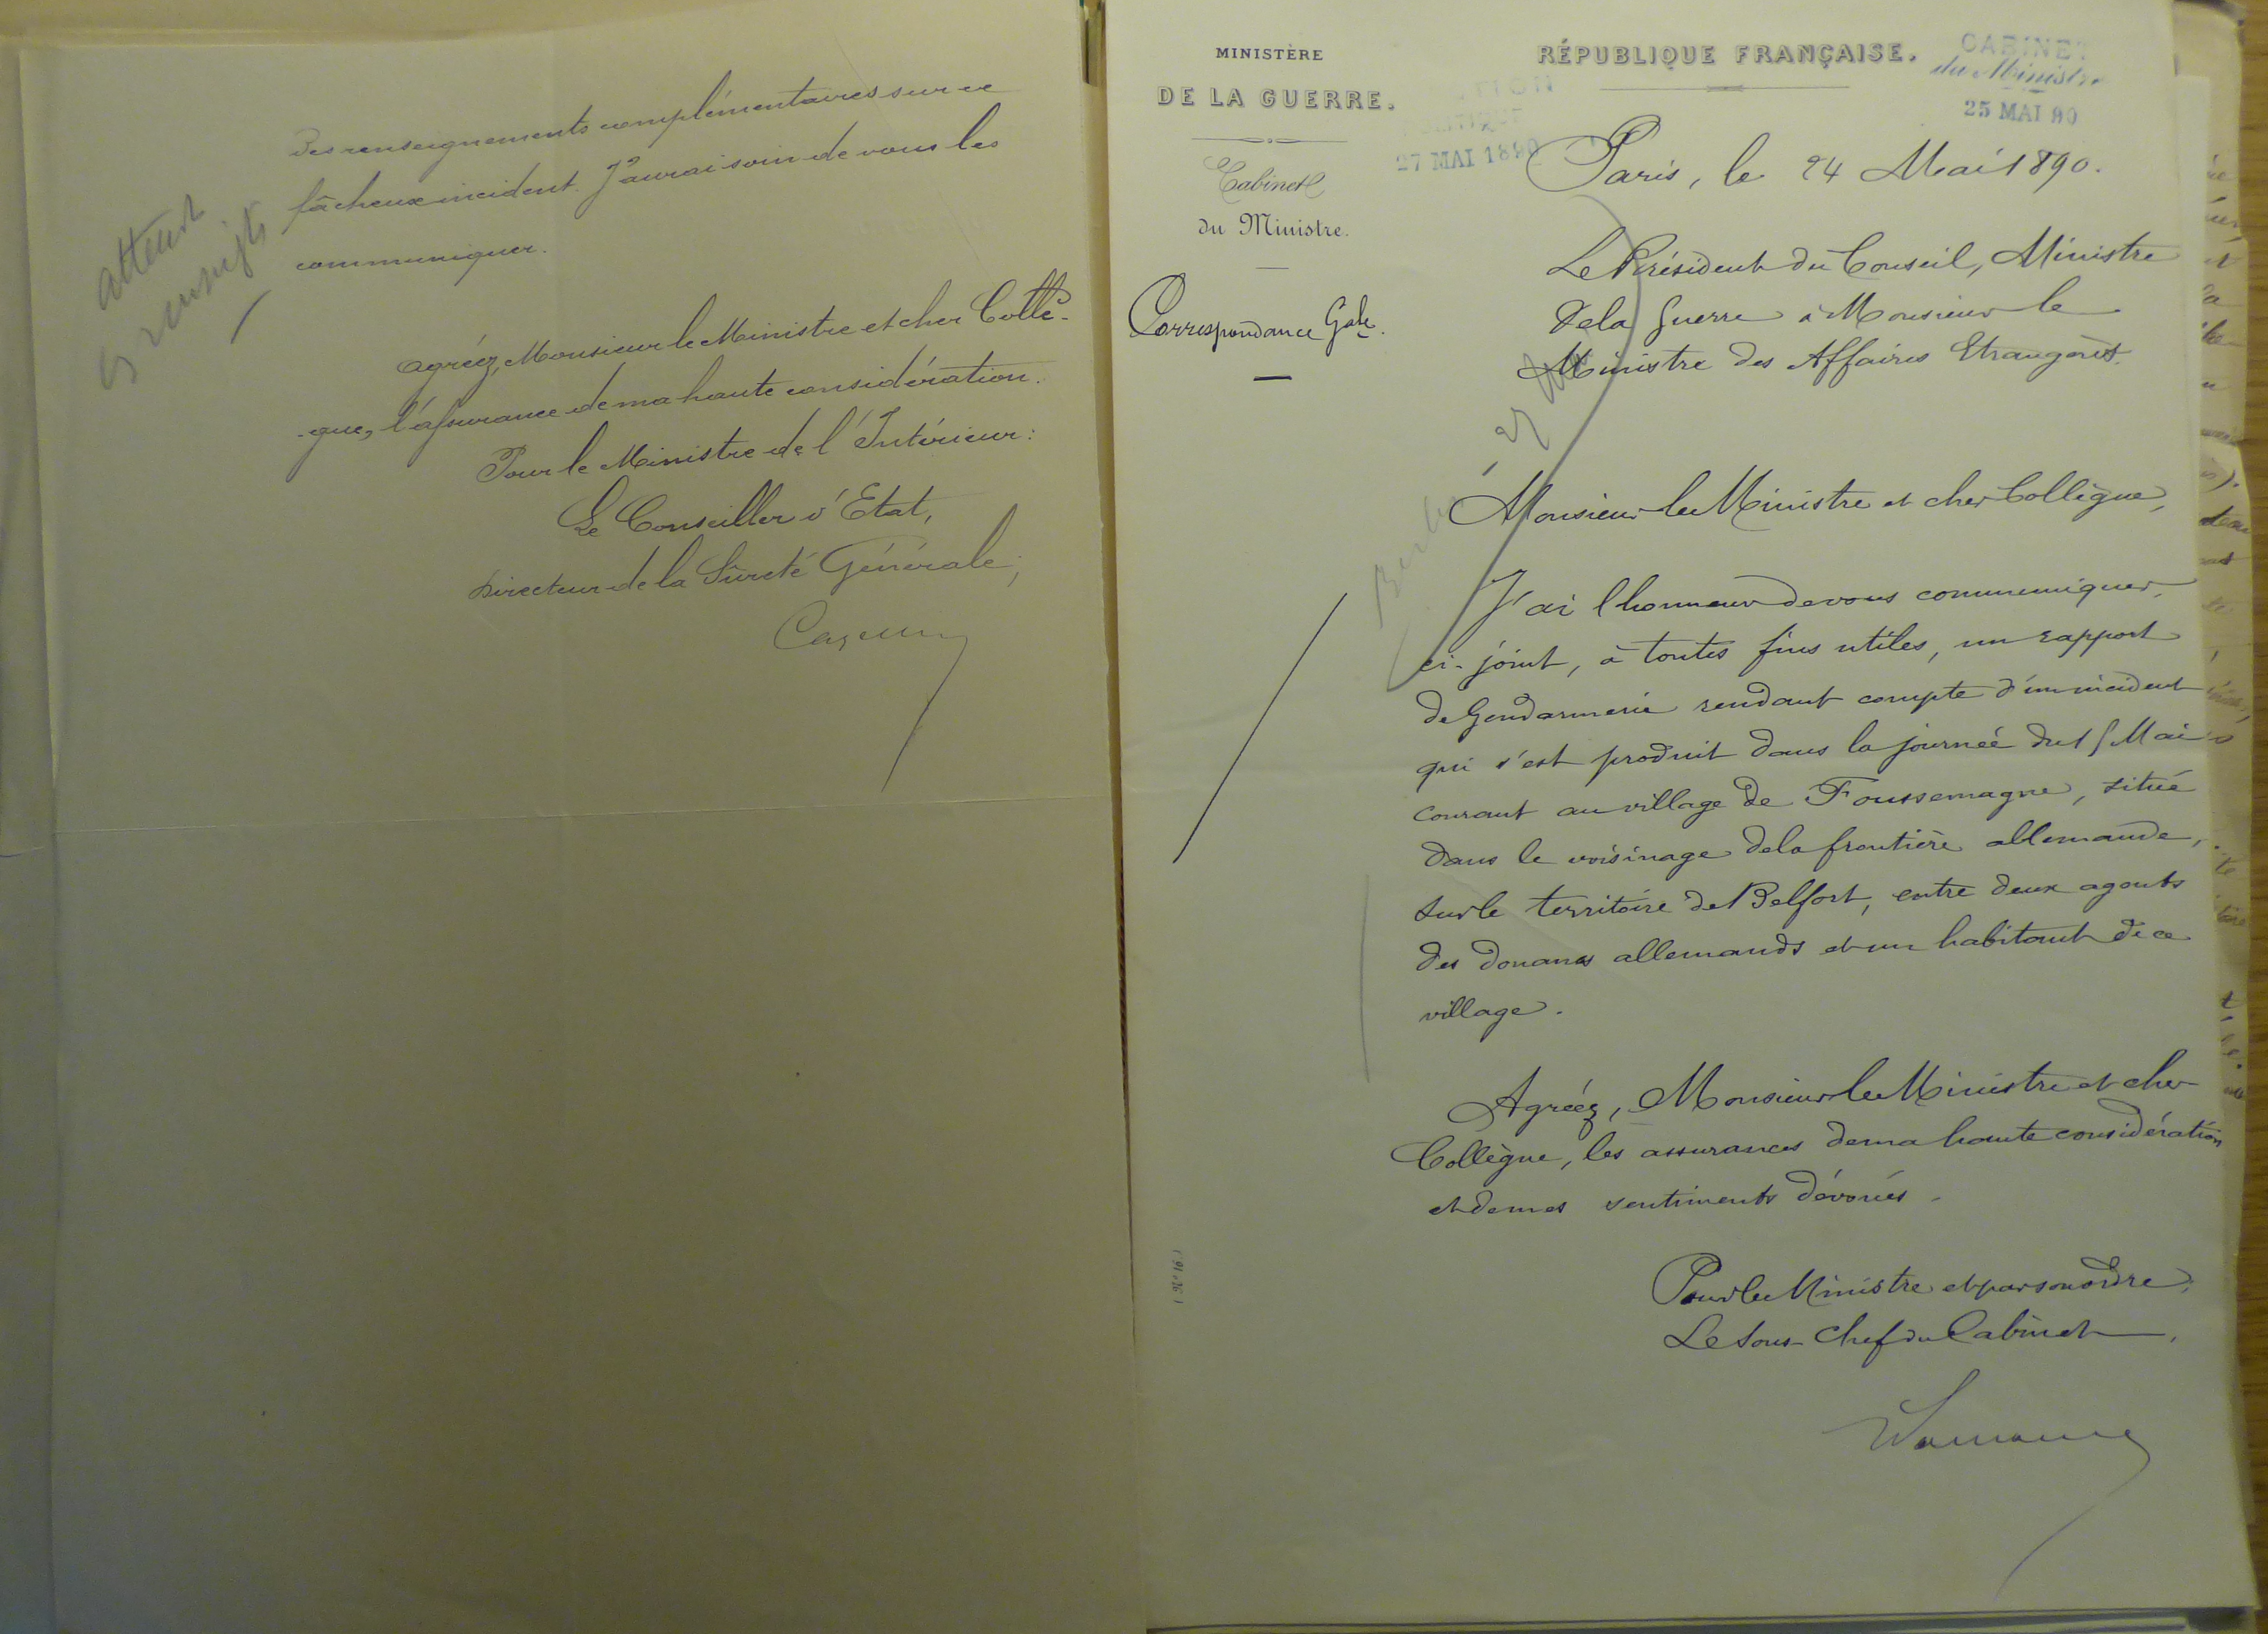 des renseignements complémentaires sur ce
fâcheux incident. J'aurai soin de vous les
communiquer.
attend
Agréez, Monsieur le Ministre et cher Collè-
-gue, l'assurance de ma haute considération.
Pour le Ministre de l'Intérieur:
Le Conseiller d'Etat,
Directeur de la Sûreté Générale,
MINISTÈRE
DE LA GUERRE.
Cabinet
du Ministre.
Correspondance Gale.
27 MAI 1890
RÉPUBLIQUE FRANÇAISE.
CABINET
du Ministre
25 MAI 90
Paris, le 24 Mai 1890.
Le Président du Conseil, Ministre
de la Guerre à Monsieur le
Ministre des Affaires Etrangères.
Monsieur le Ministre et cher Collègue,
J'ai l'honneur de vous communiquer,
ci-joint, à toutes fins utiles, un rapport
de Gendarmerie rendant compte d'un incident
qui s'est produit dans la journée du Mai
courant au village de Foussemagne, situé
dans le voisinage de la frontière allemande,
sur le territoire de Belfort, entre deux agents
des douanes allemands et un habitant de ce
village.
Agréez, Monsieur le Ministre et cher
Collègue, les assurances de ma haute considération
et de mes sentiments dévoués.
Pour le Ministre et par son ordre,
Le Sous-Chef du Cabinet,